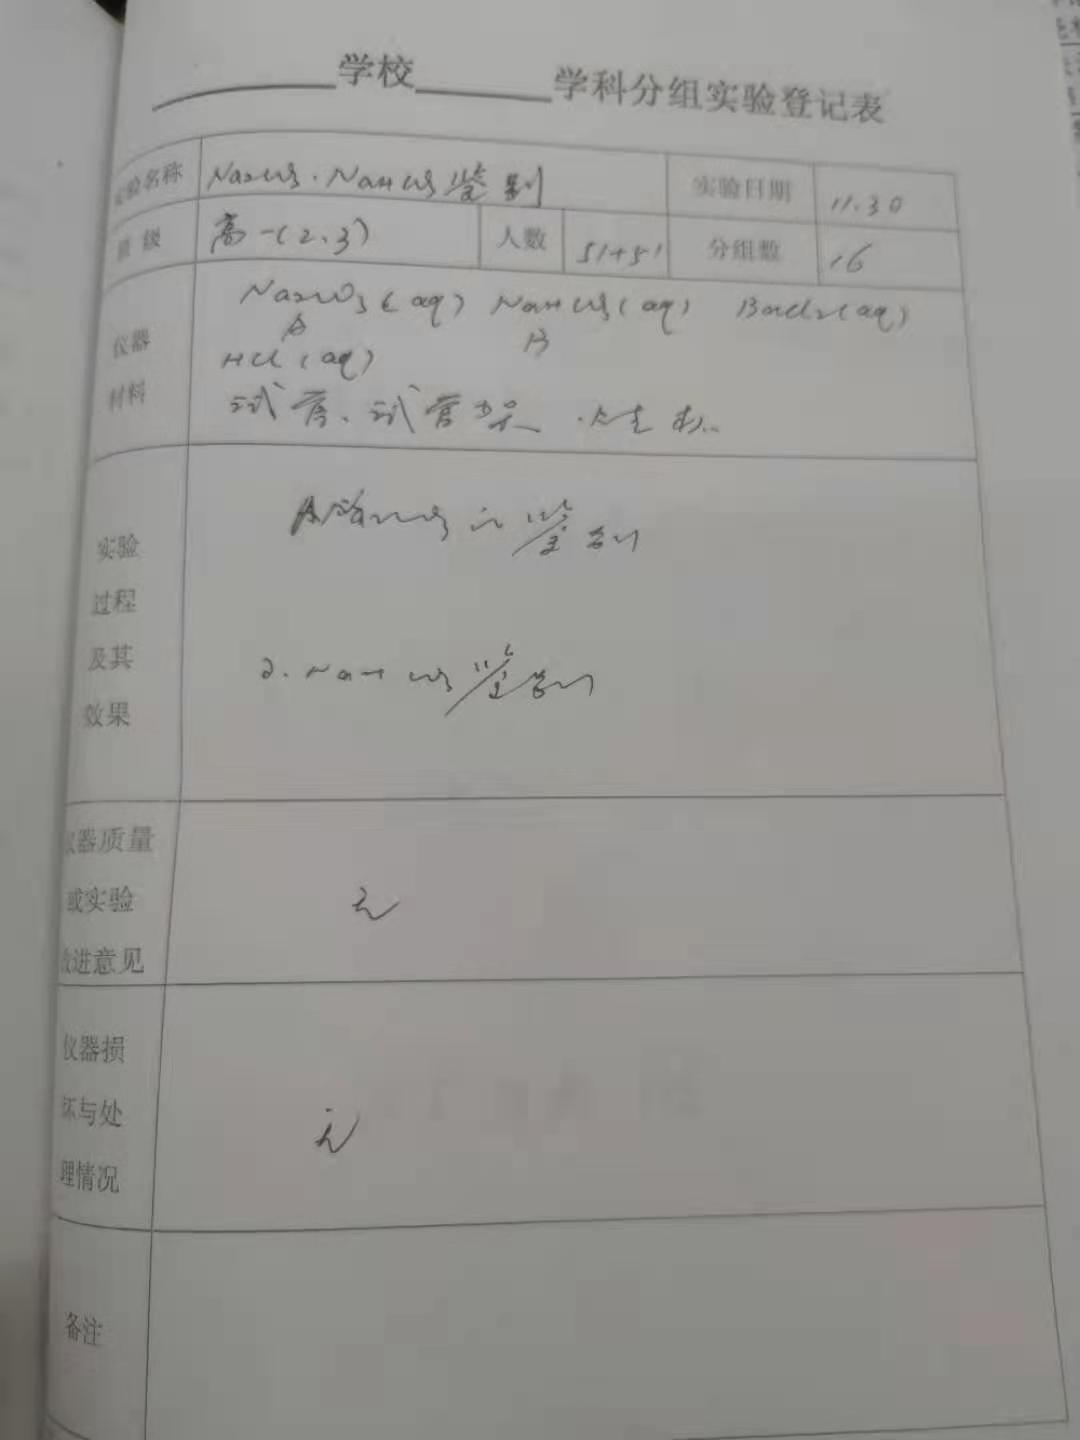 学校 学科分组实验登记表
实验名称 Na2CO3、NaHCO3鉴别 实验日期 11.30
班级 高一(2、3) 人数 51+51 分组数 16
仪器
材料
Na2CO3(aq) NaHCO3(aq) BaCl2(aq)
A B
HCl(aq)
试管、试管架
实验
过程
及其
效果
Na2CO3的鉴别
2. NaHCO3鉴别
仪器质量
或实验
改进意见
无
仪器损
坏与处
理情况
无
备注